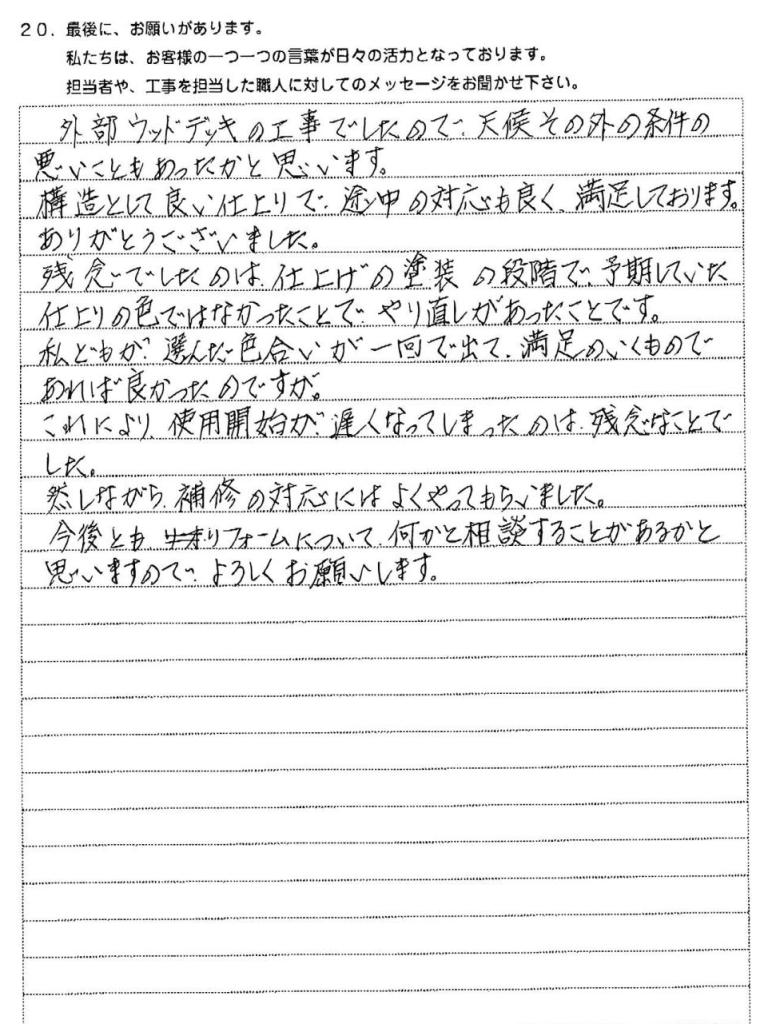 20. 最後に、お願いがあります。
私たちは、お客様の一つ一つの言葉が日々の活力となっております。
担当者や、工事を担当した職人に対してのメッセージをお聞かせ下さい。
外部ウッドデッキの工事でしたので、天候その外の条件の
悪いこともあったかと思います。
構造として良い仕上りで、途中の対応も良く、満足しております。
ありがとうございました。
残念でしたのは、仕上げの塗装の段階で、予期していた
仕上りの色ではなかったことで、やり直しがあったことです。
私どもが、選んだ色合いが一回で出て、満足のいくもので
あれば良かったのですが。
これにより、使用開始が、遅くなってしまったのは、残念なことで
した。
然しながら、補修の対応にはよくやってもらいました。
今後とも、リフォームについて、何かと相談することがあるかと
思いますので、よろしくお願いします。